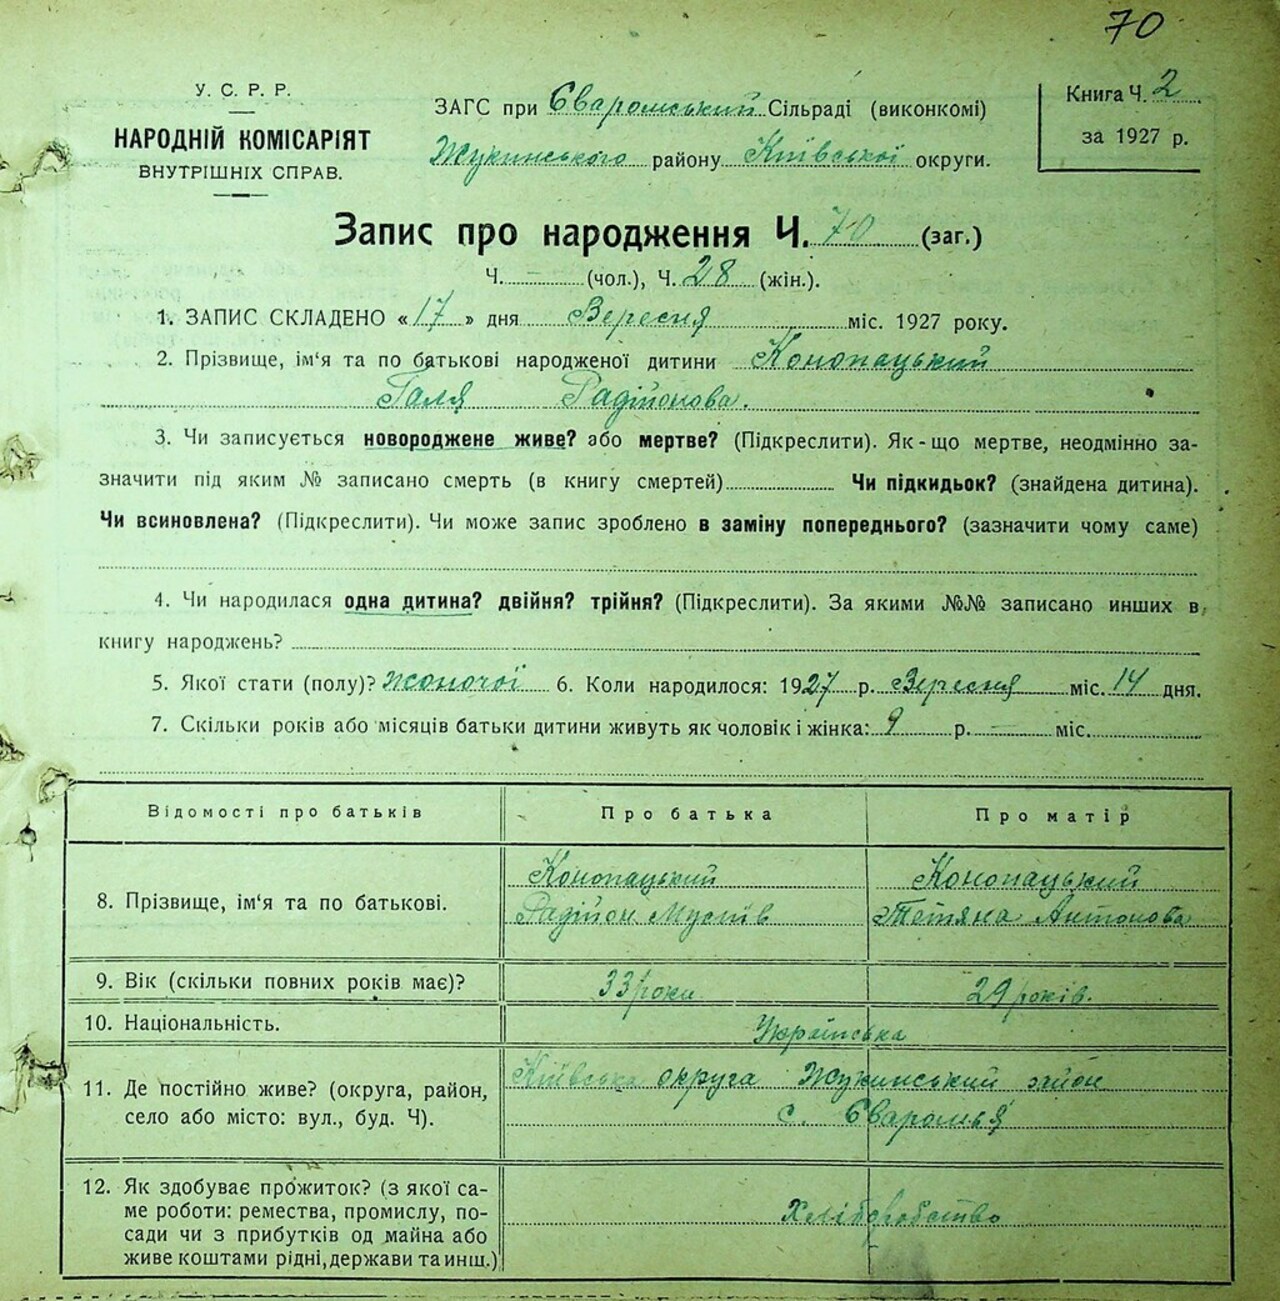 70
У. С. Р. Р.
НАРОДНІЙ КОМІСАРІЯТ
ВНУТРІШНІХ СПРАВ.
ЗАГС при Єваромський Сільраді (виконкомі)
Жукинського району Київської округи.
Книга Ч. 2
за 1927 р.
Запис про народження Ч. 70 (заг.)
Ч. – (чол.), Ч. 28 (жін.).
1. ЗАПИС СКЛАДЕНО «17» дня Вересня міс. 1927 року.
2. Прізвище, ім‘я та по батькові народженої дитини Конопацький
Галя Радійонова.
3. Чи записується новороджене живе? або мертве? (Підкреслити). Як-що мертве, неодмінно за-
значити під яким № записано смерть (в книгу смертей) Чи підкидьок? (знайдена дитина).
Чи всиновлена? (Підкреслити). Чи може запис зроблено в заміну попереднього? (зазначити чому саме)
4. Чи народилася одна дитина? двійня? трійня? (Підкреслити). За якими №№ записано инших в
книгу народжень?
5. Якої стати (полу)? жоночої 6. Коли народилося: 1927 р. Вересня міс. 14 дня.
7. Скільки років або місяців батьки дитини живуть як чоловік і жінка: 9 р. – міс.
Відомості про батьків Про батька Про матір
8. Прізвище, ім‘я та по батькові. Конопацький Конопацький
Радійон Мусіїв Тетяна Антонова
9. Вік (скільки повних років має)? 33 роки 29 років.
10. Національність. Українська
11. Де постійно живе? (округа, район, Київська округа Жукинський район
село або місто: вул., буд. Ч). с. Єваромья
12. Як здобуває прожиток? (з якої са-
ме роботи: ремества, промислу, по- Хліборобство
сади чи з прибутків од майна або
живе коштами рідні, держави та инш.)